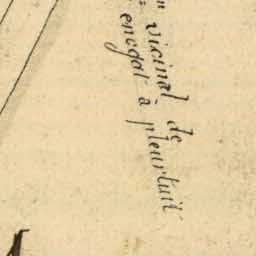 n vicinal de
enogat à pleurtuit